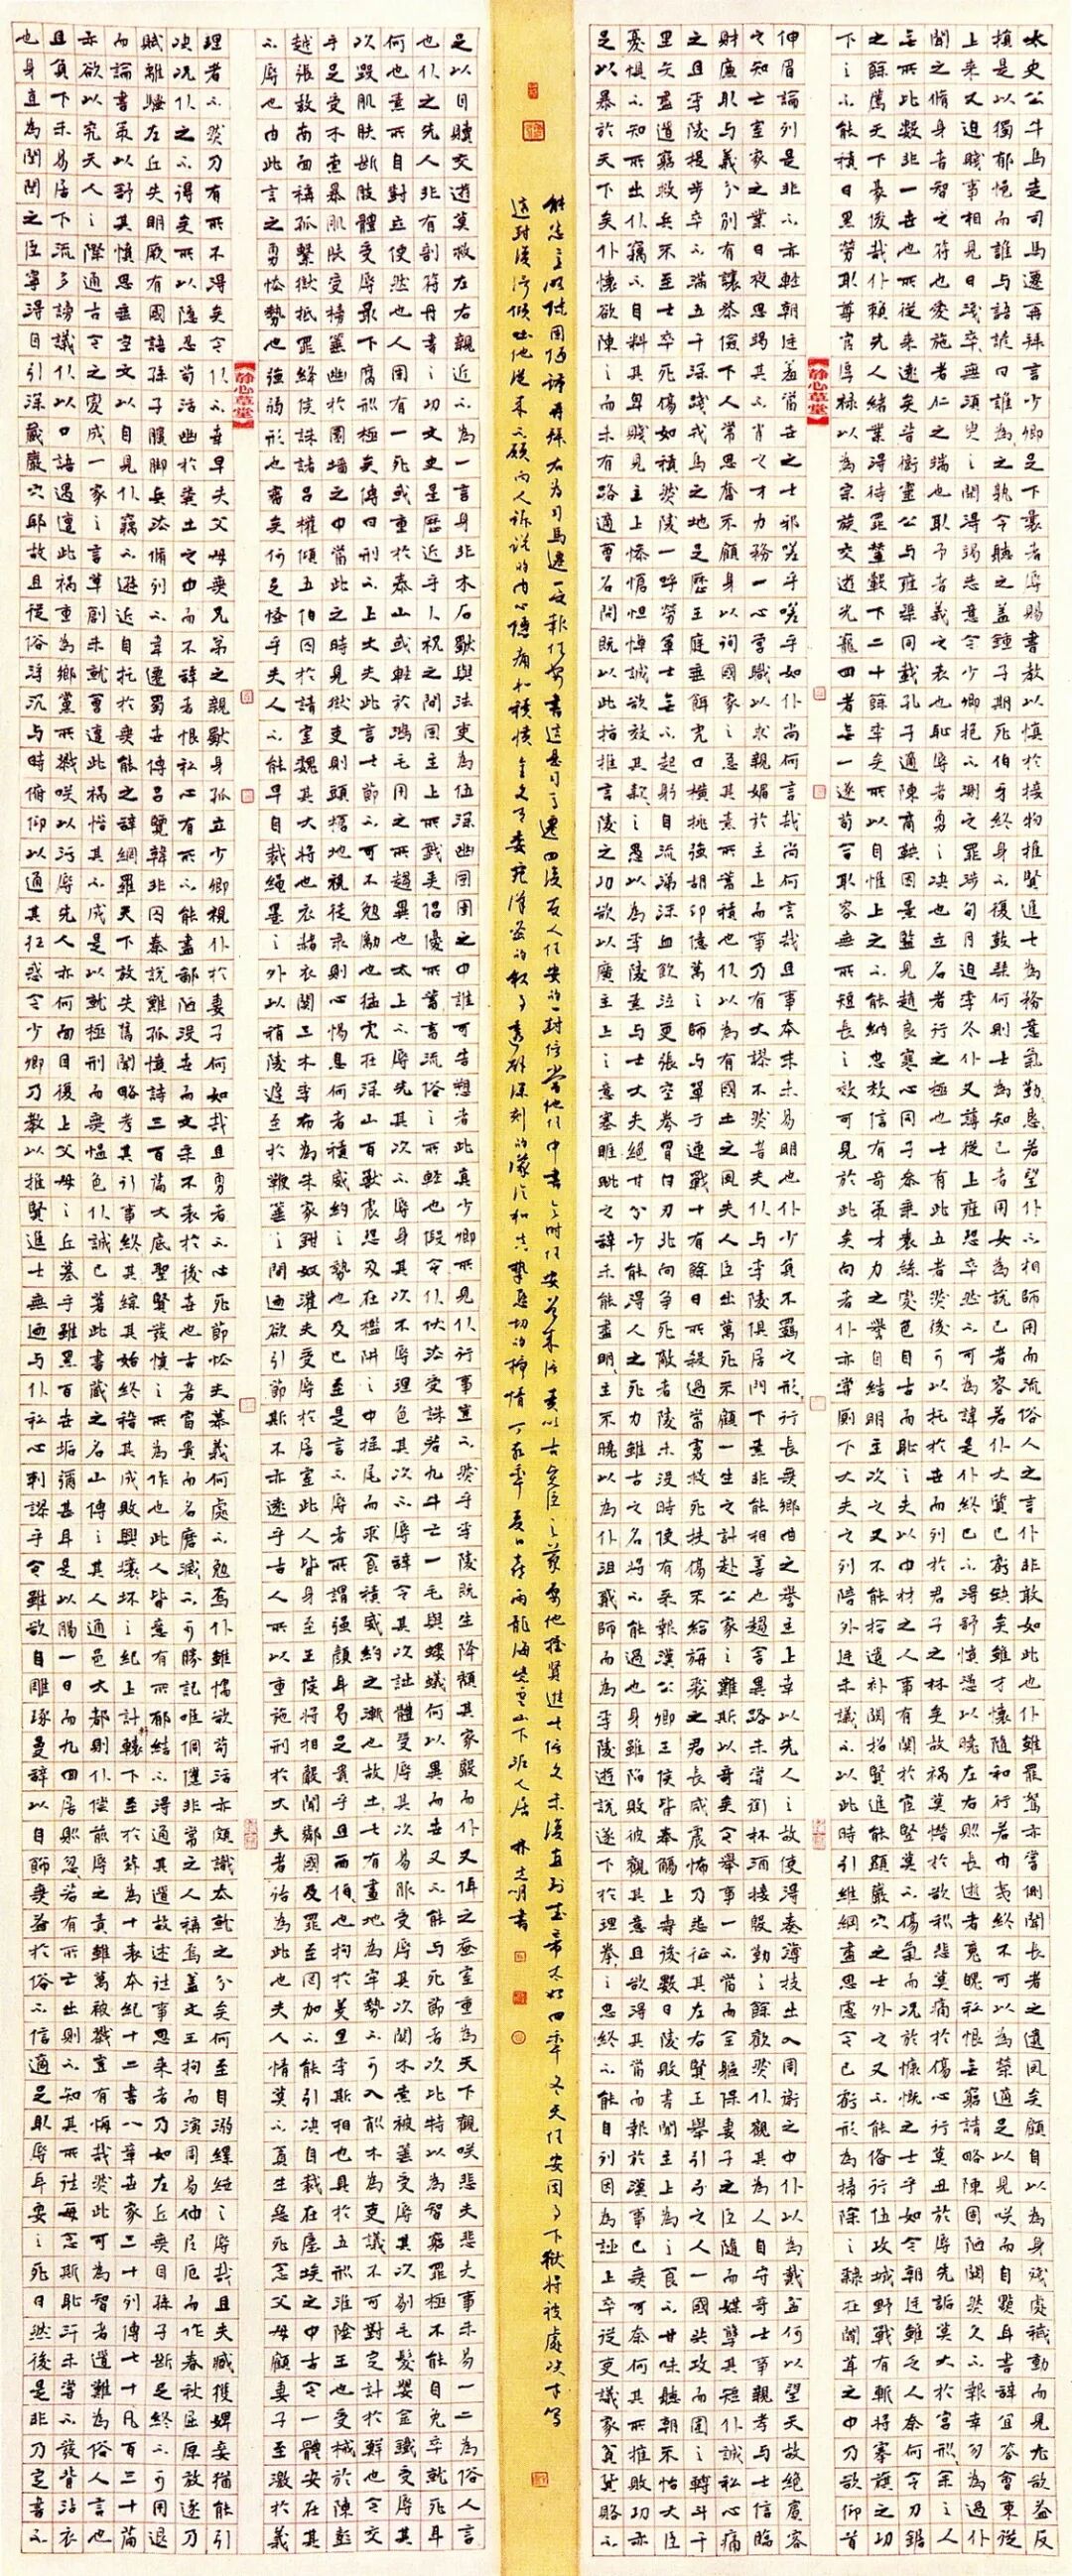 太史公牛馬走司馬遷再拜言少卿足下曩者辱賜書教以慎於接物推賢進士為務意氣勤懇若望仆不相師用而流俗人之言仆非敢如此也仆雖罷駑亦嘗側聞長者之遺風矣顧自以為身殘處穢動而見尤欲益反
損是以獨郁悒而誰與語諺曰誰為之孰令聽之蓋鍾子期死伯牙終身不復鼓琴何則士為知己者用女為說己者容若仆大質已虧缺矣雖才懷隨和行若由夷終不可以為榮適足以見笑而自點耳書辭宜答會東從
上來又迫賤事相見日淺卒無須臾之間得竭志意今少卿抱不測之罪涉旬月迫季冬仆又薄從上雍恐卒然不可為諱是仆終已不得舒憤懣以曉左右則長逝者魂魄私恨無窮請略陳固陋闕然久不報幸勿為過仆
聞之修身者智之符也愛施者仁之端也取予者義之表也恥辱者勇之決也立名者行之極也士有此五者然後可以托於世而列於君子之林矣故禍莫憯於欲利悲莫痛於傷心行莫丑於辱先詬莫大於宮刑余之人
無所比數非一世也所從來遠矣昔衛靈公與雍渠同載孔子適陳商鞅因景監見趙良寒心同子參乘袁絲變色自古而恥之夫以中材之人事有關於宦豎莫不傷氣而況於慷慨之士乎如今朝廷雖乏人奈何令刀鋸
之餘薦天下豪俊哉仆賴先人緒業得待罪輦轂下二十餘年矣所以自惟上之不能納忠效信有奇策才力之譽自結明主次之又不能拾遺補闕招賢進能顯巖穴之士外之又不能備行伍攻城野戰有斬將搴旗之功
下之不能積日累勞取尊官厚祿以為宗族交遊光寵四者無一遂苟合取容無所短長之效可見於此矣向者仆亦嘗廁下大夫之列陪外廷末議不以此時引維綱盡思慮今已虧形為掃除之隸在闒茸之中乃欲仰首
伸眉論列是非不亦輕朝廷羞當世之士邪嗟乎嗟乎如仆尚何言哉尚何言哉且事本末未易明也仆少負不羈之形長無鄉曲之譽主上幸以先人之故使得奏薄技出入周衛之中仆以為戴盆何以望天故絕賓客
之知亡室家之業日夜思竭其不肖之才力務一心營職以求親媚於主上而事乃有大謬不然者夫仆與李陵俱居門下素非能相善也趨舍異路未嘗銜杯酒接殷勤之餘歡然仆觀其為人自守奇士事親孝與士信臨
財廉取與義分別有讓恭儉下人常思奮不顧身以徇國家之急其素所蓄積也仆以為有國士之風夫人臣出萬死不顧一生之計赴公家之難斯以奇矣今舉事一不當而全軀保妻子之臣隨而媒孽其短仆誠私心痛
之且李陵提步卒不滿五千深踐戎馬之地足歷王庭垂餌虎口橫挑強胡卬億萬之師與單于連戰十有餘日所殺過當虜救死扶傷不給旃裘之君長咸震怖乃悉征其左右賢王舉引弓之人一國共攻而圍之轉斗千
里矢盡道窮救兵不至士卒死傷如積然陵一呼勞軍士無不起躬自流涕沬血飲泣更張空拳冒白刃北向爭死敵者陵未沒時使有來報漢公卿王侯皆奉觴上壽後數日陵敗書聞主上為之食不甘味聽朝不怡大臣
憂懼不知所出仆竊不自料其卑賤見主上慘愴怛悼誠欲效其款之愚以為李陵素與士大夫絕甘分少能得人之死力雖古之名將不能過也身雖陷敗彼觀其意且欲得其當而報於漢事已無可奈何其所摧敗功亦
足以暴於天下矣仆懷欲陳之而未有路適會召問既以此指推言陵之功欲以廣主上之意塞睚眦之辭未能盡明主不曉以為仆沮貳師而為李陵遊說遂下於理拳之忠終不能自列因為誣上卒從吏議家貧貨賂不
足以自贖交遊莫救左右親近不為一言身非木石獨與法吏為伍深幽囹圄之中誰可告愬者此真少卿所見仆行事豈不然乎李陵既生降隤其家聲而仆又佴之蠶室重為天下觀笑悲夫悲夫事未易一二為俗人言
也仆之先人非有剖符丹書之功文史星歷近乎卜祝之間固主上所戲弄倡優所畜流俗之所輕也假令仆伏法受誅若九牛亡一毛與螻蟻何以異而世又不能與死節者次比特以為智窮罪極不能自免卒就死耳
何也素所自樹立使然也人固有一死或重於泰山或輕於鴻毛用之所趨異也太上不辱先其次不辱身其次不辱理色其次不辱辭令其次詘體受辱其次易服受辱其次關木索被箠受辱其次剔毛髮嬰金鐵受辱其
次毀肌膚斷肢體受辱最下腐刑極矣傳曰刑不上大夫此言士節不可不勉勵也猛虎在深山百獸震恐及在檻阱之中搖尾而求食積威約之漸也故士有畫地為牢勢不可入削木為吏議不可對定計於鮮也今交
手足受木索暴肌膚受榜箠幽於圜牆之中當此之時見獄吏則頭搶地視徒隸則心惕息何者積威約之勢也及已至是言不辱者所謂強顏耳曷足貴乎且西伯也拘於羑里李斯相也具於五刑淮陰王也受械於陳彭
越張敖南面稱孤繫獄抵罪絳侯誅諸呂權傾五伯囚於請室魏其大將也衣赭衣關三木季布為朱家鉗奴灌夫受辱於居室此人皆身至王侯將相聲聞鄰國及罪至罔加不能引決自裁在塵埃之中古今一體安在其
不辱也由此言之勇怯勢也強弱形也審矣何足怪乎夫人不能早自裁繩墨之外以稍陵遲至於鞭箠之間乃欲引節斯不亦遠乎古人所以重施刑於大夫者殆為此也夫人情莫不貪生惡死念父母顧妻子至激於義
理者不然乃有所不得矣今仆不幸早失父母無兄弟之親獨身孤立少卿視仆於妻子何如哉且勇者不必死節怯夫慕義何處不勉焉仆雖懦欲苟活亦頗識去就之分矣何至自溺縲紲之辱哉且夫臧獲婢妾猶能引
決況仆之不得已所以隱忍苟活幽於糞土之中而不辭者恨私心有所不能盡鄙陋沒世而文采不表於後世也古者富貴而名磨滅不可勝記唯倜儻非常之人稱焉蓋文王拘而演周易仲尼厄而作春秋屈原放逐乃
賦離騷左丘失明厥有國語孫子臏腳兵法修列不韋遷蜀世傳呂覽韓非囚秦說難孤憤詩三百篇大底聖賢發憤之所為作也此人皆意有所郁結不得通其道故述往事思來者乃如左丘無目孫子斷足終不可用退
而論書策以舒其憤思垂空文以自見仆竊不遜近自托於無能之辭網羅天下放失舊聞略考其行事綜其終始稽其成敗興壞之紀上計軒轅下至於茲為十表本紀十二書八章世家三十列傳七十凡百三十篇
亦欲以究天人之際通古今之變成一家之言草創未就會遭此禍惜其不成是以就極刑而無慍色仆誠已著此書藏之名山傳之其人通邑大都則仆償前辱之責雖萬被戮豈有悔哉然此可為智者道難為俗人言也
且負下未易居下流多謗議仆以口語遇遭此禍重為鄉黨所戮笑以污辱先人亦何面目復上父母之丘墓乎雖累百世垢彌甚耳是以腸一日而九回居則忽若有所亡出則不知其所往每念斯恥汗未嘗不發背沾衣
也身直為閨閤之臣寧得自引深藏巖穴邪故且從俗浮沉與時俯仰以通其狂惑今少卿乃教以推賢進士無乃與仆私心剌謬乎今雖欲自雕琢曼辭以自飾無益於俗不信適足取辱耳要之死日然後是非乃定書不
能悉意略陳固陋謹再拜右為司馬遷一文報任安書這是司馬遷回復友人任安的一封信當他任中書令時任安曾來信責以古賢臣之義要他推賢進士信久未復直到太始四年冬天任安因事下獄將被處決才寫
這封復信傾吐他從來不願向人訴說的內心隱痛和積憤
林志明書
靜心草堂
靜心草堂